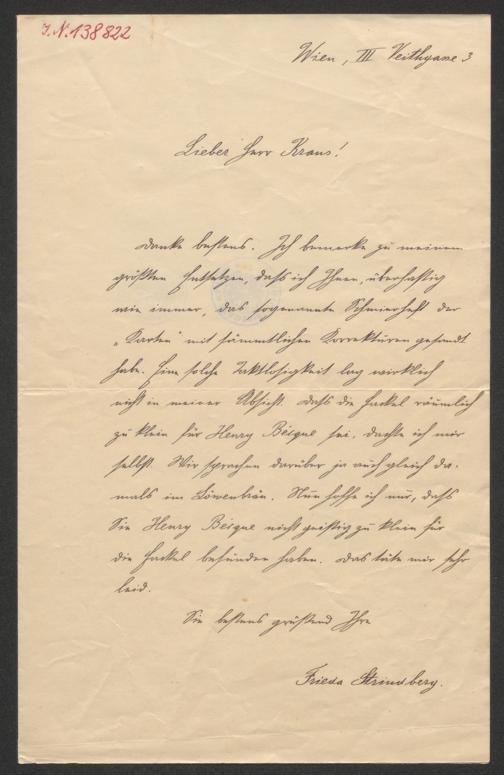 J. N. 138822
Wien, III Veithgasse 3
Lieber Herr Kraus!
Danke bestens. Ich bemerke zu meinem
größten Entsetzen, daß ich Ihnen, überhastig
wie immer, das sogenannte Schmierheft der
„Karten" mit sämmtlichen Korrekturen gesandt
habe. Eine solche Taktlosigkeit lag wirklich
nicht in meiner Absicht. Daß die Fackel räumlich
zu klein für Henry Bècque sei, dachte ich mir
selbst. Wir sprachen darüber ja auch gleich da-
mals im Löwenbräu. Nun hoffe ich nur, daß
Sie Henry Bècque nicht geistig zu klein für
die Fackel befunden haben. Das täte mir sehr
leid.
Sie bestens grüßend Ihre
Frieda Strindberg.